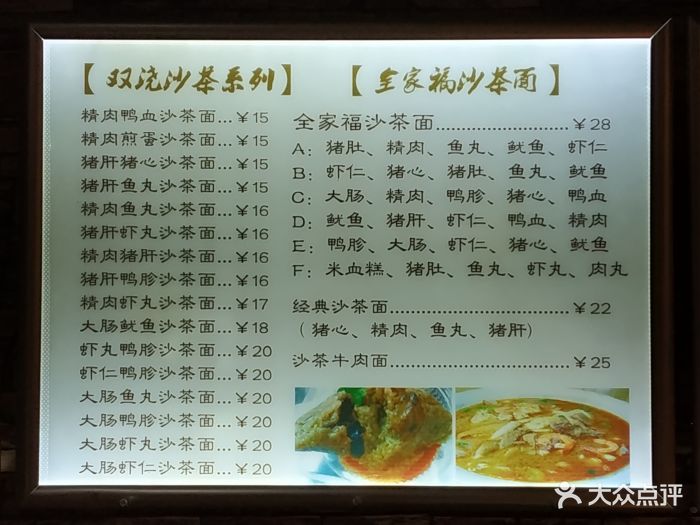 【双浇沙茶系列】
精肉鸭血沙茶面...¥15
精肉煎蛋沙茶面...¥15
猪肝猪心沙茶面...¥15
猪肝鱼丸沙茶面...¥15
精肉鱼丸沙茶面...¥16
猪肝虾丸沙茶面...¥16
精肉猪肝沙茶面...¥16
猪肝鸭胗沙茶面...¥16
精肉虾丸沙茶面...¥17
大肠鱿鱼沙茶面...¥18
虾丸鸭胗沙茶面...¥20
虾仁鸭胗沙茶面...¥20
大肠鱼丸沙茶面...¥20
大肠鸭胗沙茶面...¥20
大肠虾丸沙茶面...¥20
大肠虾仁沙茶面...¥20
【全家福沙茶面】
全家福沙茶面........................¥28
A：猪肚、精肉、鱼丸、鱿鱼、虾仁
B：虾仁、猪心、猪肚、鱼丸、鱿鱼
C：大肠、精肉、鸭胗、猪心、鸭血
D：鱿鱼、猪肝、虾仁、鸭血、精肉
E：鸭胗、大肠、虾仁、猪心、鱿鱼
F：米血糕、猪肚、鱼丸、虾丸、肉丸
经典沙茶面................................¥22
（猪心、精肉、鱼丸、猪肝）
沙茶牛肉面................................¥25
大众点评